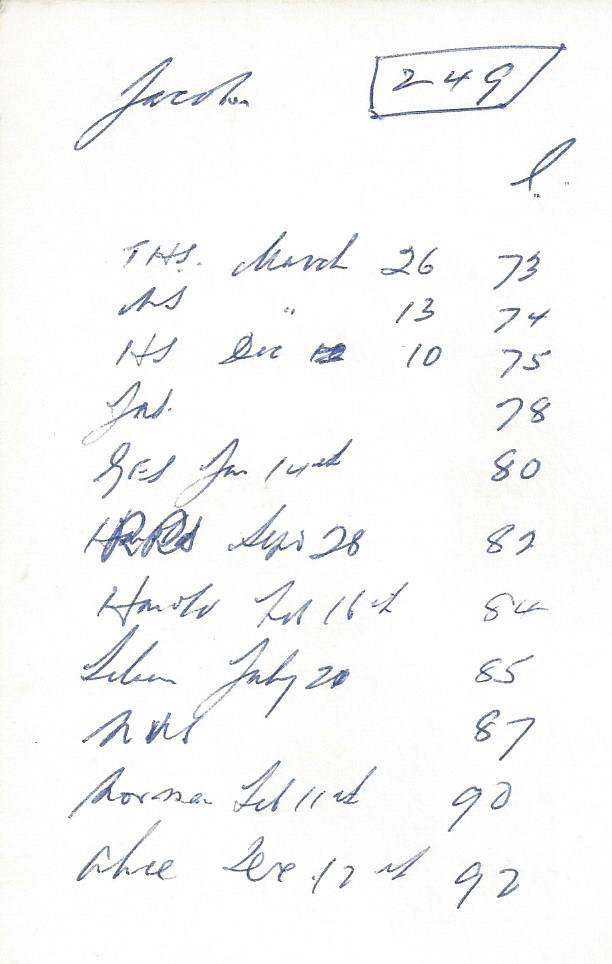 249
THS. March 26 73
NS " 13 74
HS Dec 10 75
78
GES Jan 14th 80
Sept 28 82
Harold Feb 16th 84
July 20 85
87
Norman Feb 11th 90
Alice Dec. 12th 92